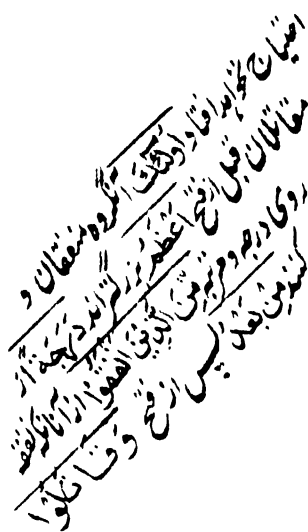 احتیاج نخواهد افتاد اُولٰئِكَ آنگروه منفقان و
مقاتلان قبل از فتح اَعْظَمُ بزرگتراند دَرَجَةً از
روی درجه و مرتبه مِنَ الَّذِينَ اَنْفَقُوا از آنانکه نفقه
کنند مِنْ بَعْدُ پس از فتح وَ قَاتَلُوا